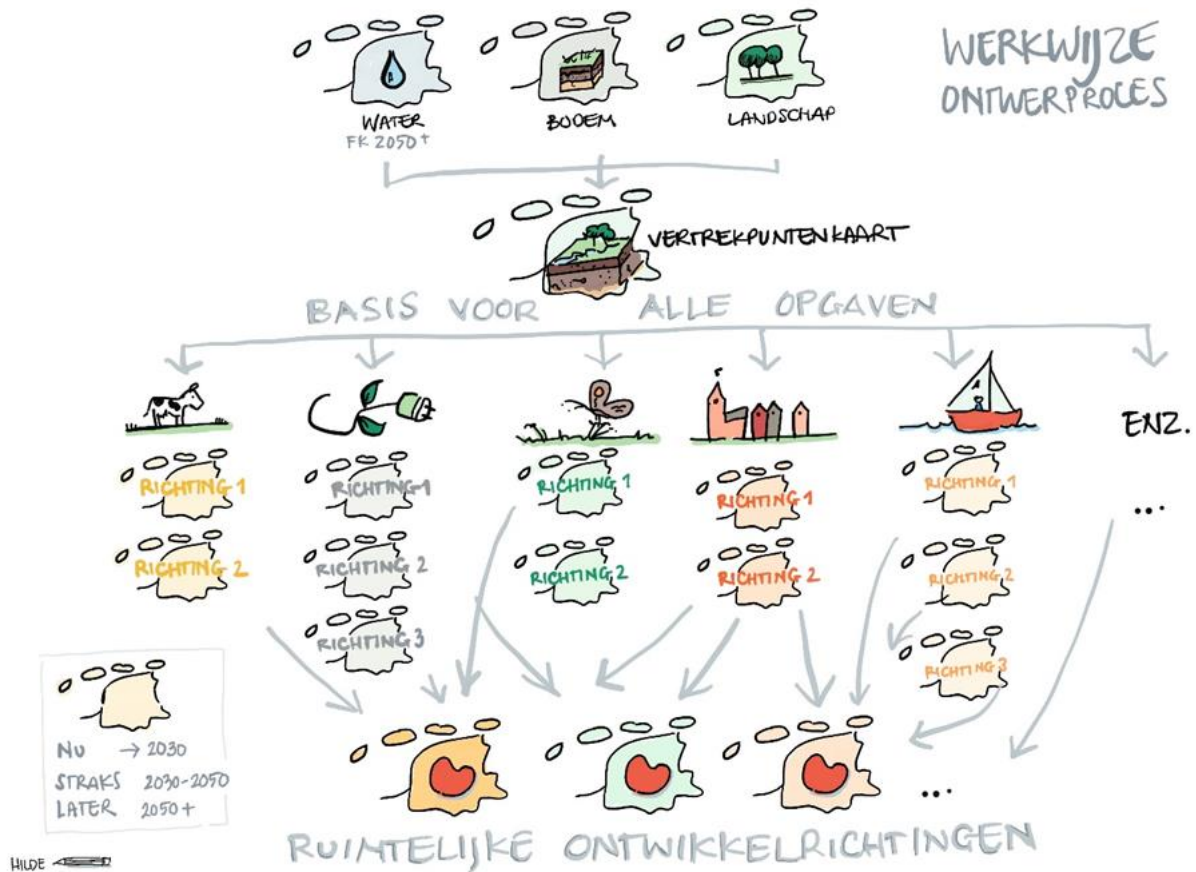 WERKWIJZE
ONTWERPROCES
WATER
FK 2050+
BODEM
LANDSCHAP
VERTREKPUNTENKAART
BASIS VOOR ALLE OPGAVEN
ENZ.
...
RICHTING 1
RICHTING 1
RICHTING 1
RICHTING 1
RICHTING 1
RICHTING 2
RICHTING 2
RICHTING 2
RICHTING 2
RICHTING 2
RICHTING 3
RICHTING 3
NU → 2030
STRAKS 2030-2050
LATER 2050+
...
RUIMTELIJKE ONTWIKKELRICHTINGEN
HILDE